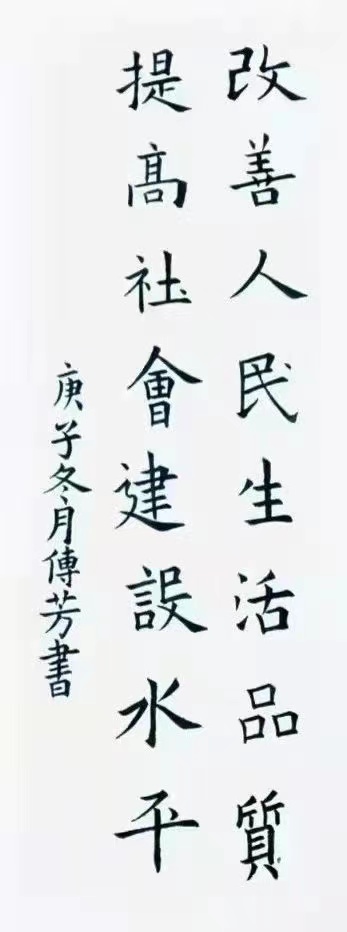 改善人民生活品質
提高社會建設水平
庚子冬月傳芳書